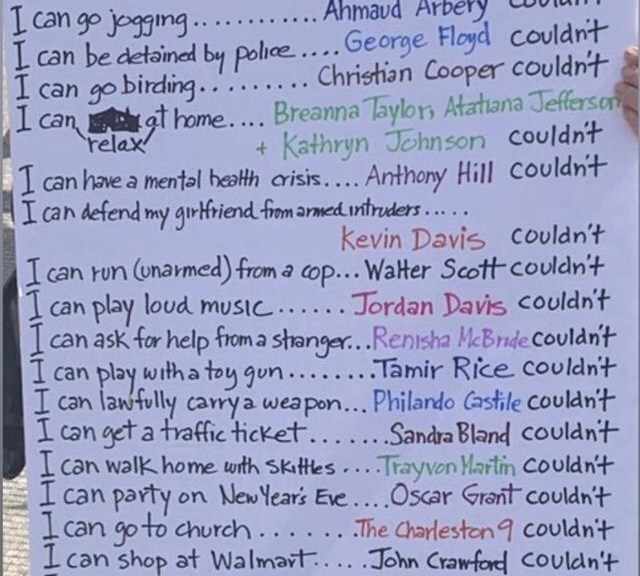 I can go jogging............ Ahmaud Arbery couldn't
I can be detained by police.... George Floyd couldn't
I can go birding......... Christian Cooper couldn't
I can relax at home.... Breanna Taylor, Atatiana Jefferson
+ Kathryn Johnson couldn't
I can have a mental health crisis.... Anthony Hill couldn't
I can defend my girlfriend from armed intruders.....
Kevin Davis couldn't
I can run (unarmed) from a cop... Walter Scott couldn't
I can play loud music...... Jordan Davis couldn't
I can ask for help from a stranger... Renisha McBride couldn't
I can play with a toy gun........ Tamir Rice couldn't
I can lawfully carry a weapon... Philando Castile couldn't
I can get a traffic ticket....... Sandra Bland couldn't
I can walk home with skittles .... Trayvon Martin couldn't
I can party on New Year's Eve .... Oscar Grant couldn't
I can go to church ....... The Charleston 9 couldn't
I can shop at Walmart..... John Crawford couldn't